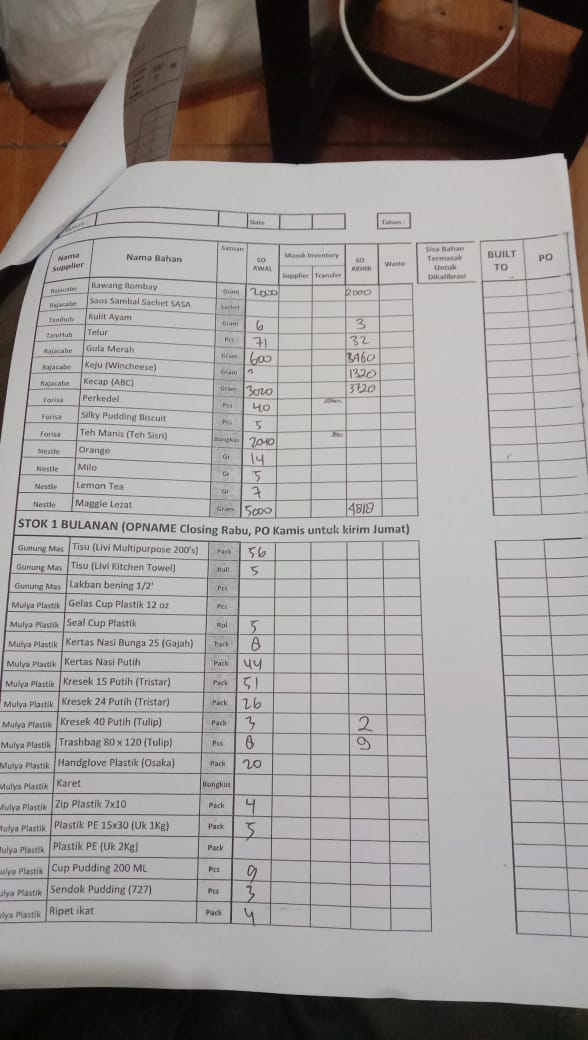 Date Tahun :
Nama Supplier Nama Bahan Satuan SO AWAL Masuk Inventory Supplier Transfer SO AKHIR Waste Sisa Bahan Termasak Untuk Dikalibrasi BUILT TO PO
Rajacabe Bawang Bombay Gram 2000 2000
Rajacabe Saos Sambal Sachet SASA Sachet
Tanihub Kulit Ayam Gram 6 3
TaniHub Telur Pcs 71 32
Rajacabe Gula Merah Gram 600 3460
Rajacabe Keju (Wincheese) Gram 1320
Rajacabe Kecap (ABC) Gram 3020 3720
Forisa Perkedel Pcs 40
Forisa Silky Pudding Biscuit Pcs 5
Forisa Teh Manis (Teh Sisri) Bungkus 2040
Nestle Orange Gr 14
Nestle Milo Gr 5
Nestle Lemon Tea Gr 7
Nestle Maggie Lezat Gram 5000 4818
STOK 1 BULANAN (OPNAME Closing Rabu, PO Kamis untuk kirim Jumat)
Gunung Mas Tisu (Livi Multipurpose 200's) Pack 56
Gunung Mas Tisu (Livi Kitchen Towel) Roll 5
Gunung Mas Lakban bening 1/2' Pcs
Mulya Plastik Gelas Cup Plastik 12 oz Pcs
Mulya Plastik Seal Cup Plastik Rol 5
Mulya Plastik Kertas Nasi Bunga 25 (Gajah) Pack 8
Mulya Plastik Kertas Nasi Putih Pack 44
Mulya Plastik Kresek 15 Putih (Tristar) Pack 51
Mulya Plastik Kresek 24 Putih (Tristar) Pack 26
Mulya Plastik Kresek 40 Putih (Tulip) Pack 3 2
Mulya Plastik Trashbag 80 x 120 (Tulip) Pcs 8 9
Mulya Plastik Handglove Plastik (Osaka) Pack 20
Mulya Plastik Karet Bungkus
Mulya Plastik Zip Plastik 7x10 Pack 4
Mulya Plastik Plastik PE 15x30 (Uk 1Kg) Pack 5
Mulya Plastik Plastik PE (Uk 2Kg) Pack
ulya Plastik Cup Pudding 200 ML Pcs 9
ulya Plastik Sendok Pudding (727) Pcs 3
lya Plastik Ripet ikat Pack 4